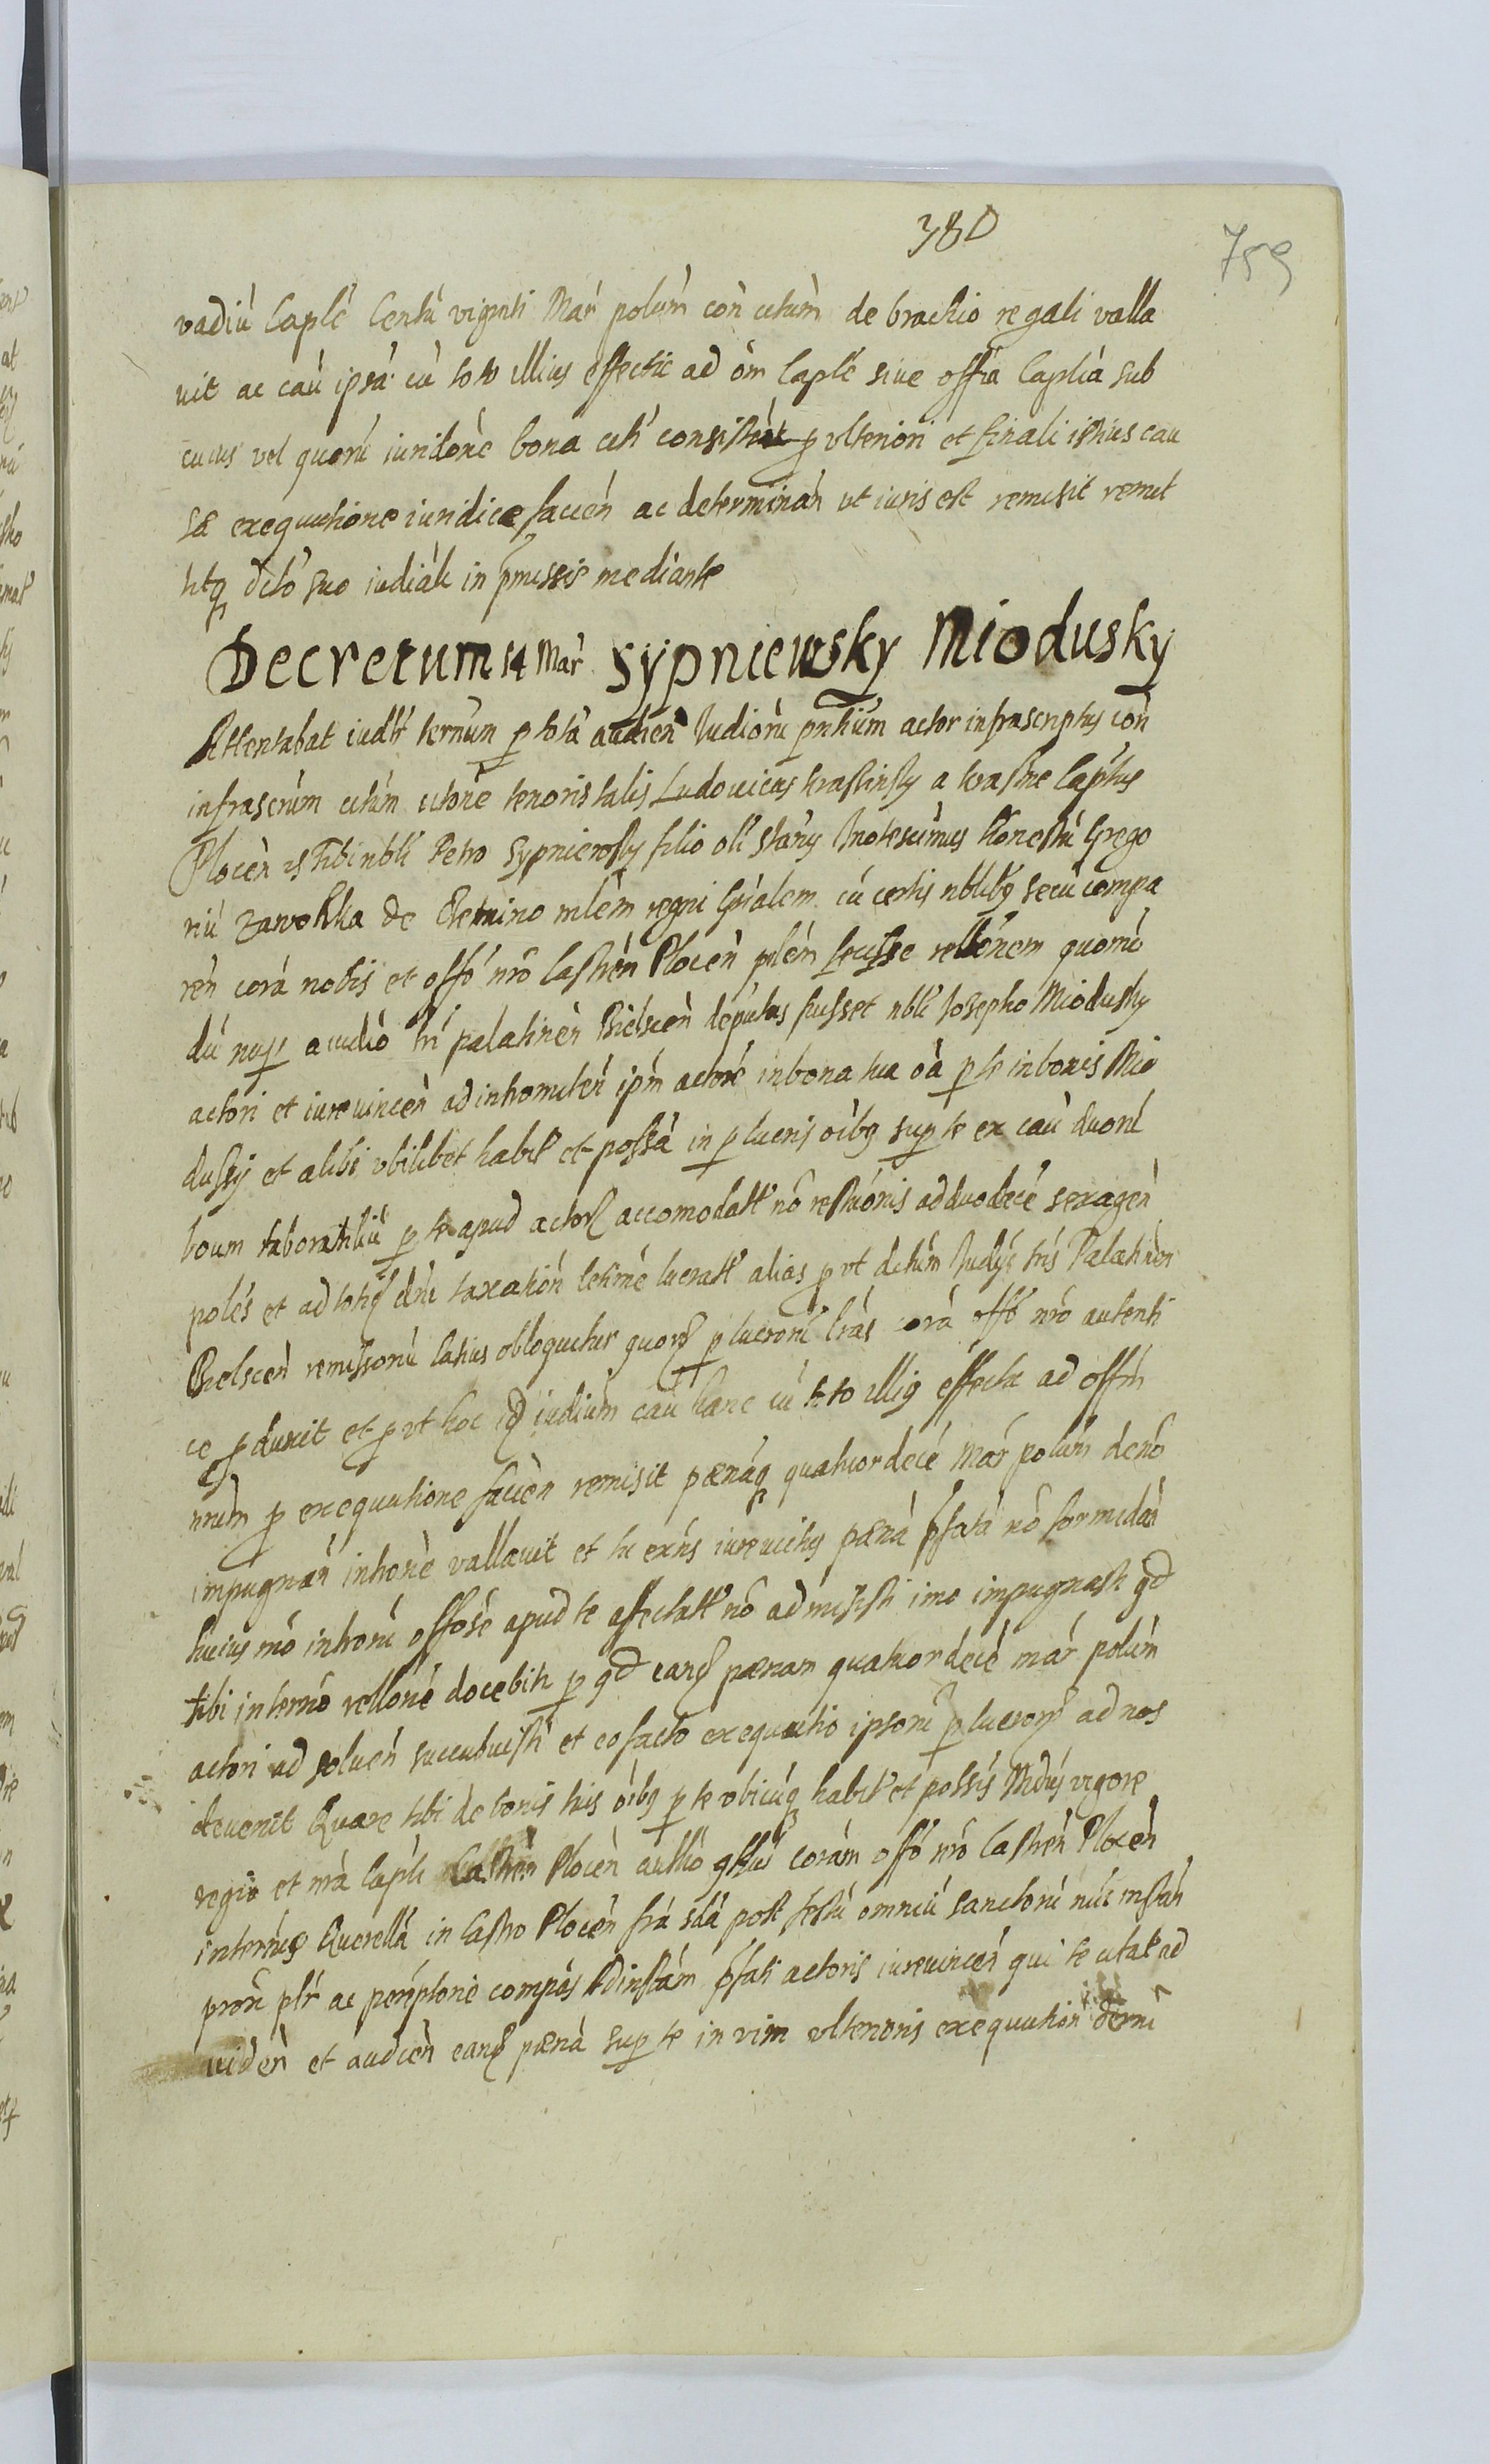 380
759
vadiu Caple Centu viginti Mar polum con citum de brachio regali valla
vit ac cau ipsa cu toto illius effectu ad om Caple siue offia Caplia sub
cuius vel quoru iuridone bona citi consistut p vlteriori et finali istius cau
sæ exequutione iuridicæ facien ac determinan vt iuris est remisit remit
titq dcto suo iudiali in pmissis mediante
Decretum 14 Mar Sypniewsky Miodusky
Attentabat iudlr ternum p tota audien Iudioru pntium actor infrascriptus con
infrascrum citum citone tenoris talis Ludouicus krasinsky a krasne Captus
Plocen rs Tibi nbli Petro Sypniewsky filio oli Stany Inotescimus honestu Grego
riu zawohka de mlem regni gnalem cu certis nbliby secu compa
ren cora nobis et offo nro Castren Plocen plem fecisse rellonem quomo
du nup a iudio tri palatinen Bielscen deputus fuisset nbli Josepho Miodusky
actori et iureuincen ad inhomiten ipm actore in bona tua oa p te in bonis Mio
dussy et alibi vbilibet habit et possa in p lucris oibq sup te ex cau duoru
boum laboratiliu p te apud actor accomodatt no restuonis ad duodece sexagen
poles et ad totiq dni taxation letime lucratt alias p vt dctum Iudy tris Palatinen
Bielscen remissoriu latius obloquitur quor p lucroru lras cora offo nro autenti
ce p duxit et p vt hoc id iudium cau hanc cu toto illiq effectu ad offm
nrum p exequutione facien remisit pænaq quatuordece Mar polum deno
impugnan inhone vallauit et tu exns iureuictus pæna pfata no formidan
huius mo inhoni offose apud te affectatt no admisisti imo impugnasti qd
tibi in termo rellone docebitr p qd eand pænam quatuordece mar polum
actori ad soluen succubuisti et eo facto exequutio ipsoru p lucror ad nos
deuenit Quare tibi de bonis tuis oibq p te vbicuq habit et possis Mdus vigore
regia et nra capli Castren Plocen autho qttus coram offo nro Castren Plocen
in termis Querella in Castro Plocen fra sda post festu omniu sanctoru nuc instan
pron plr ac pemptorie compas Ad instam pfati actoris iureuincen qui te citat ad
viden et audien eand pæna sup te in vim vlterioris exequution